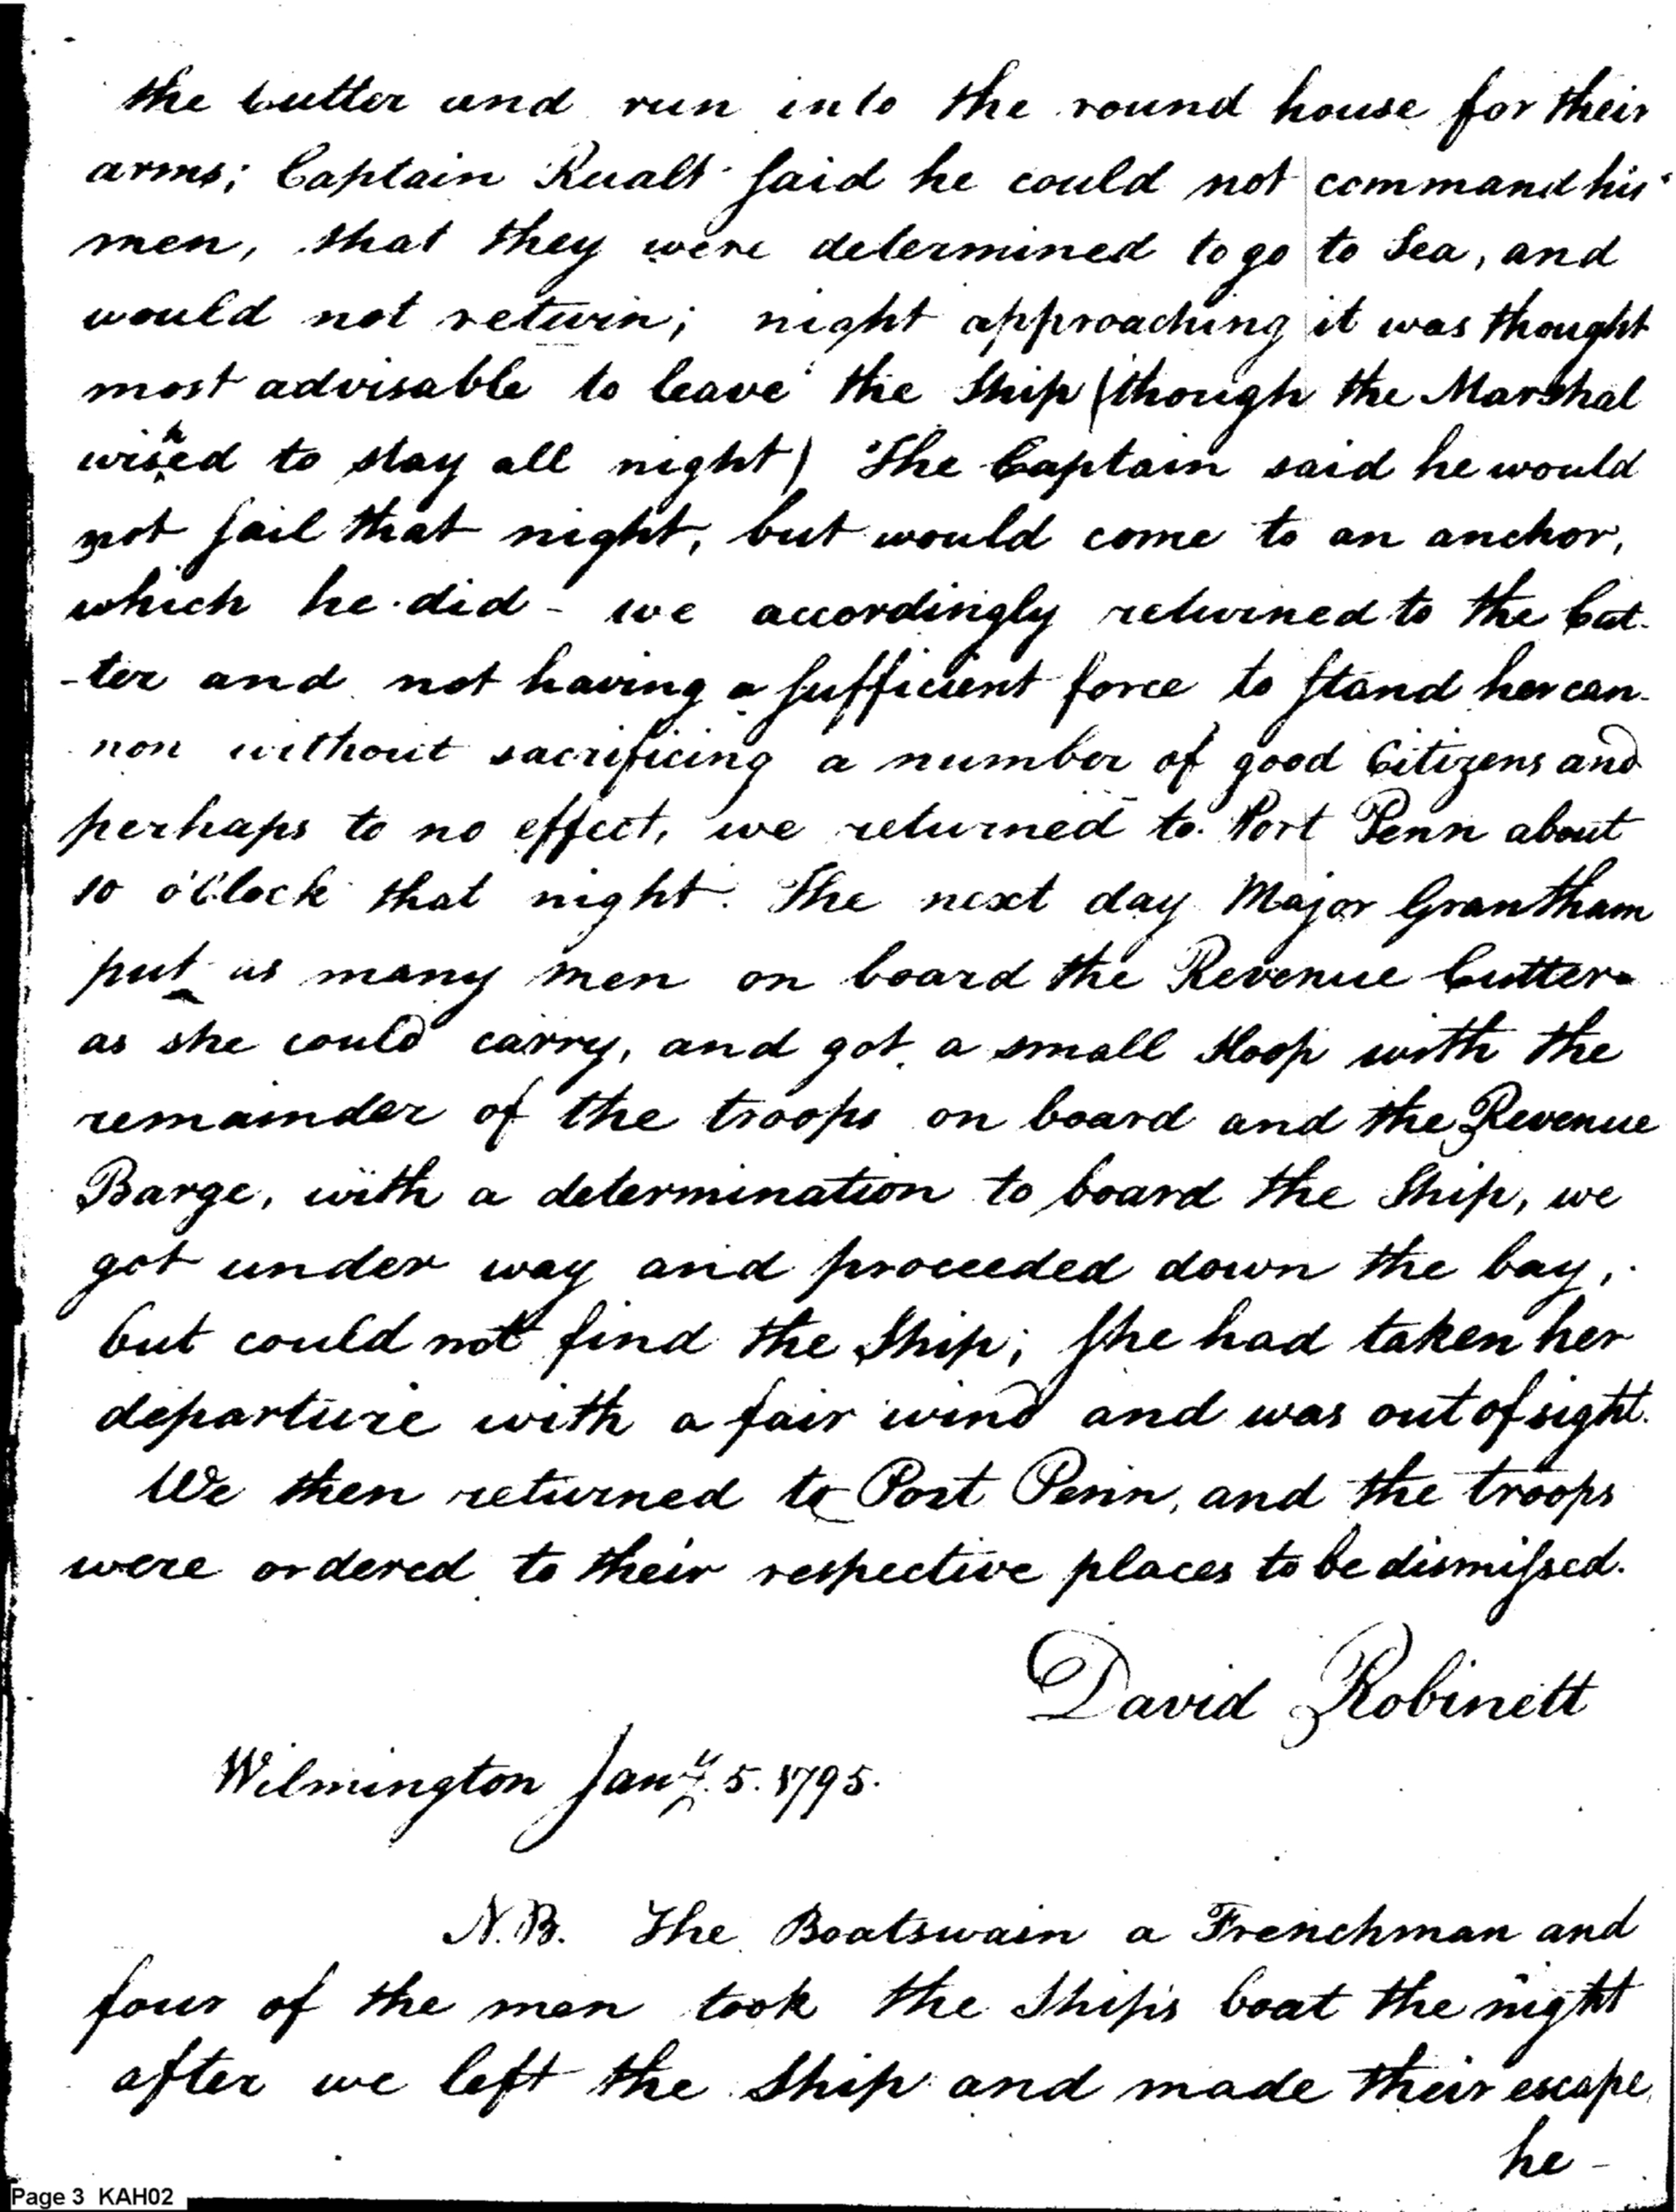 the Cutter and run into the round house for their
arms; Captain Rualt said he could not command his
men, that they were determined to go to Sea, and
would not return; night approaching it was thought
most advisable to leave the Ship (though the Marshal
wished to stay all night) The Captain said he would
not sail that night, but would come to an anchor,
which he did - we accordingly returned to the Cut-
-ter and not having a sufficient force to stand her can-
non without sacrificing a number of good Citizens and
perhaps to no effect, we returned to Port Penn about
10 o'Clock that night. The next day Major Grantham
put as many men on board the Revenue Cutter
as she could carry, and got a small Sloop with the
remainder of the troops on board and the Revenue
Barge, with a determination to board the Ship, we
got under way and proceeded down the bay,
but could not find the Ship; She had taken her
departure with a fair wind and was out of sight.
We then returned to Port Penn, and the troops
were ordered to their respective places to be dismissed.
David Robinett
Wilmington Jany. 5. 1795.
N.B. The Boatswain a Frenchman and
four of the men took the Ship's boat the night
after we left the Ship and made their escape,
he -
Page 3 KAH02